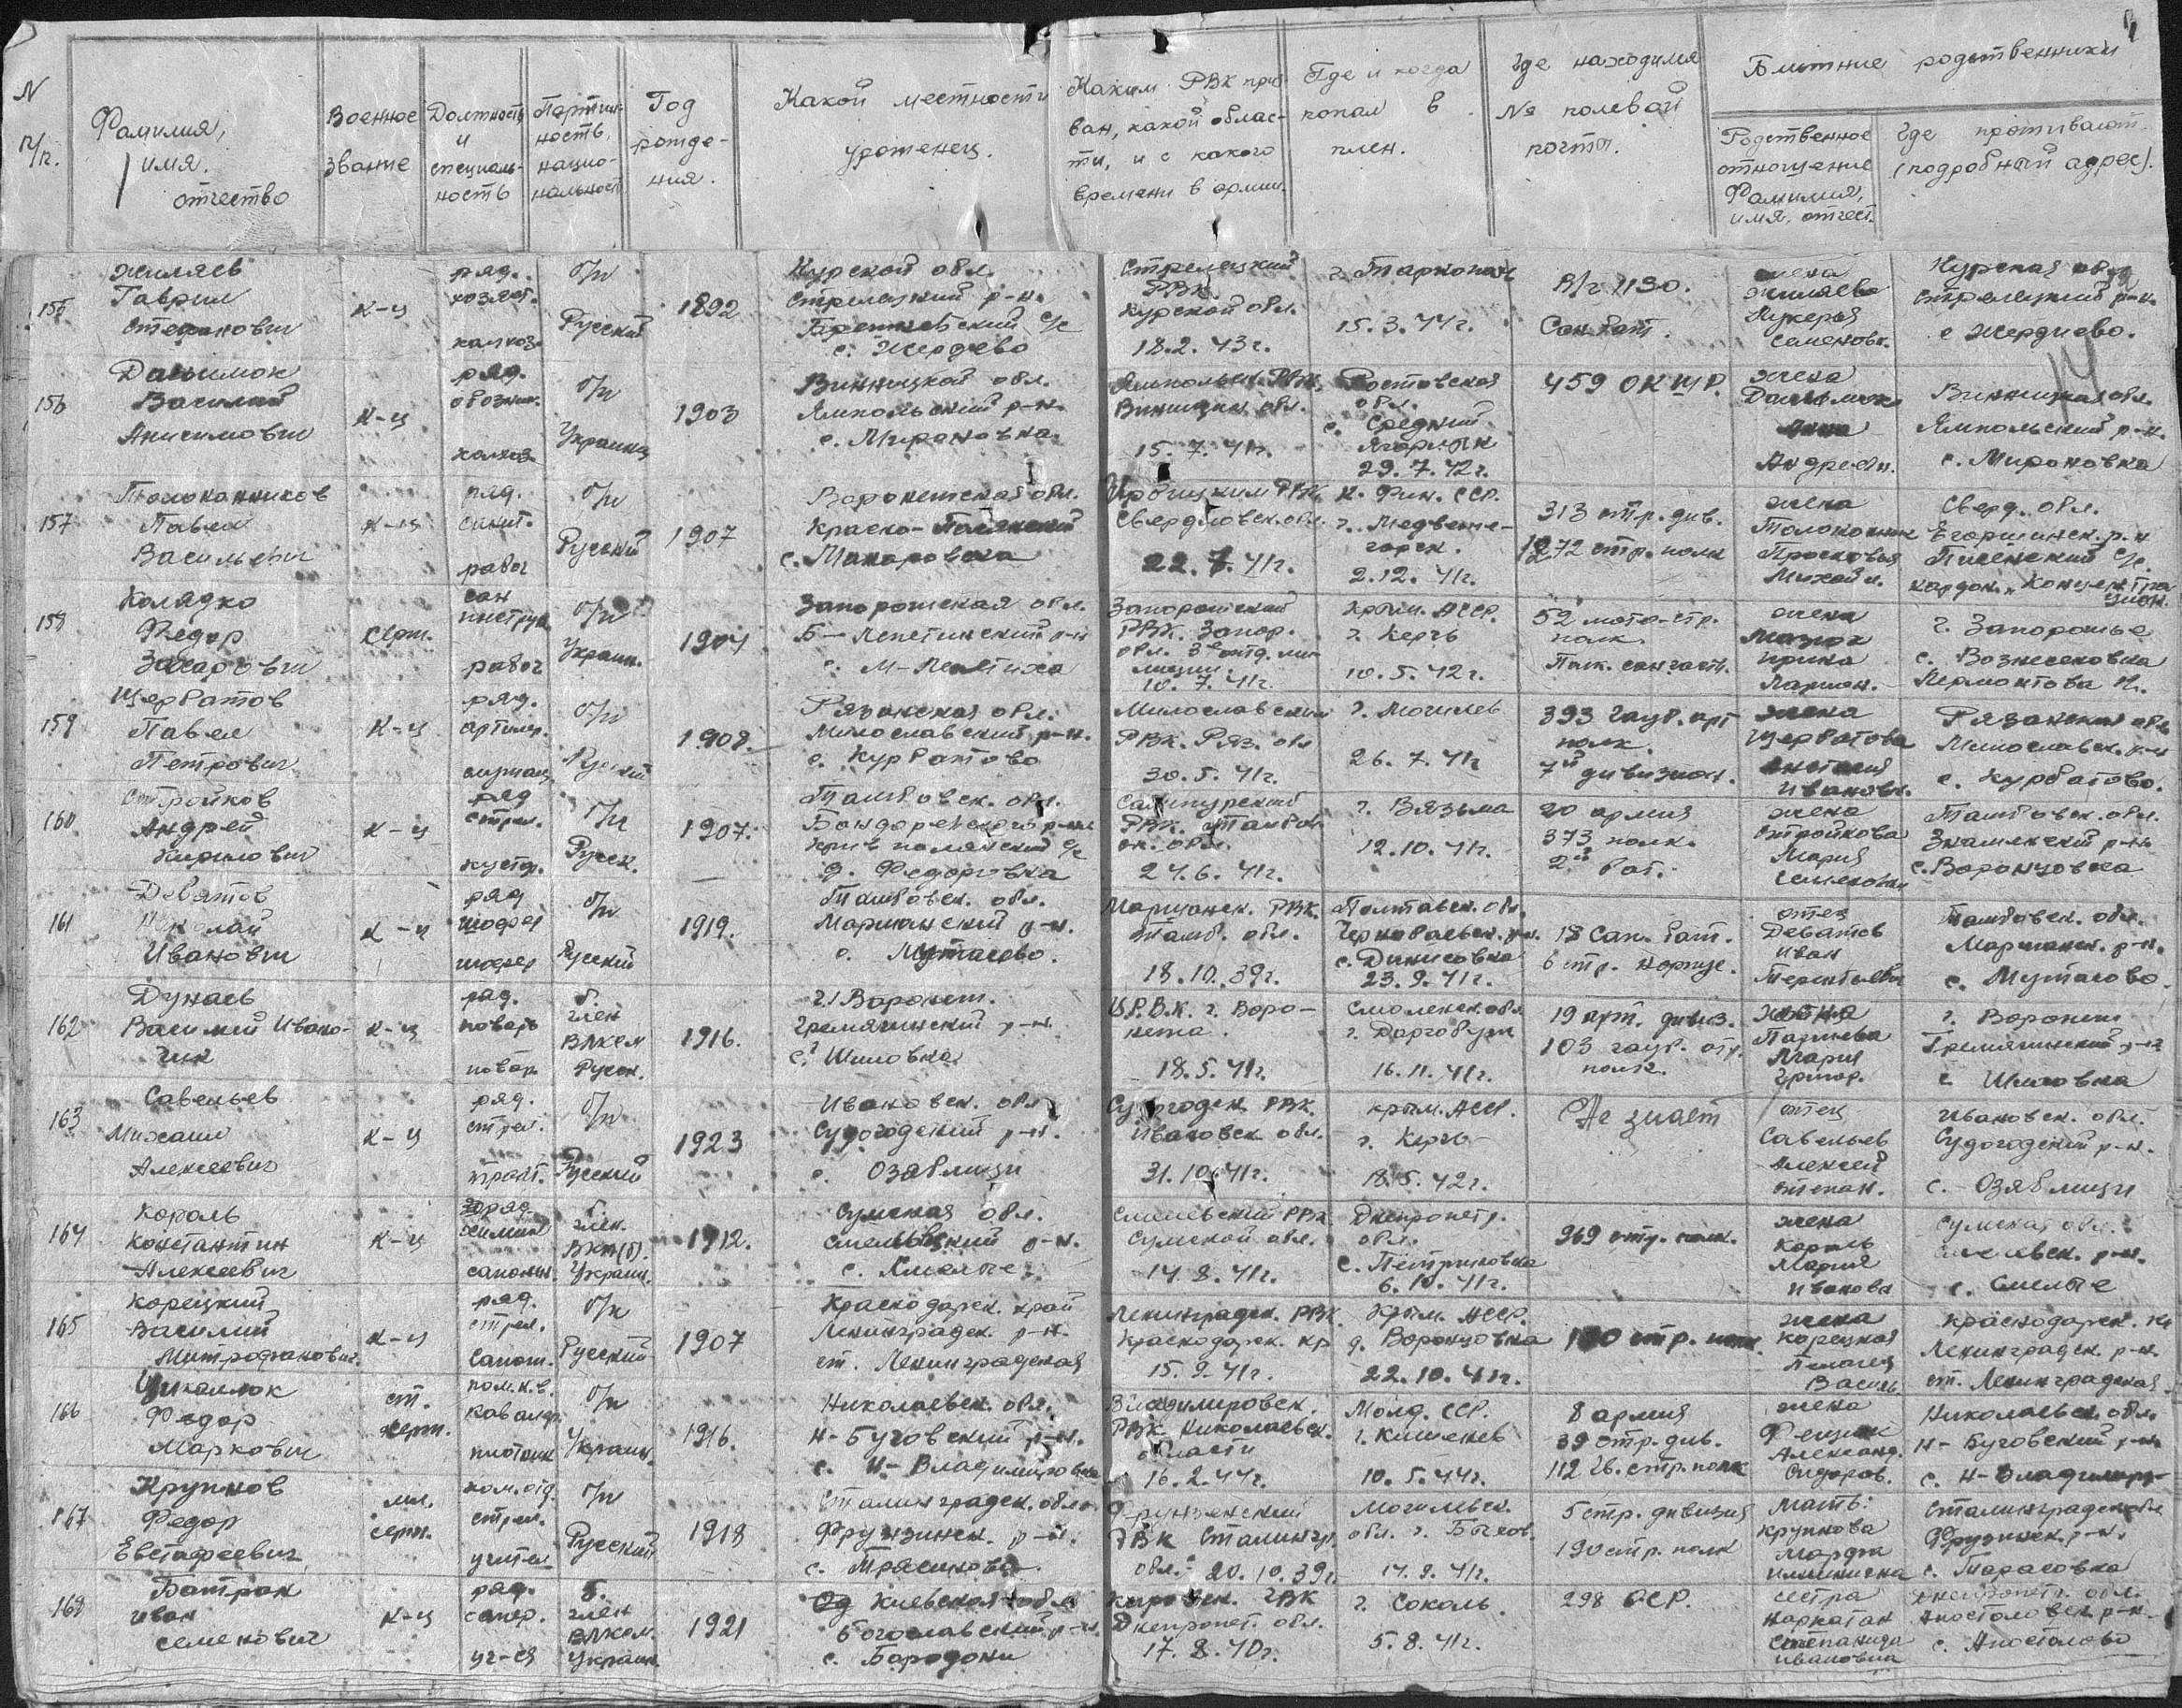 N п/п.
Фамилия, имя. отчество
Военное звание
Должность и специаль-ность
Партий-ность, нацио-нальност
Год рожде-ния.
Какой местности уроженец.
Каким РВК приз-ван, какой облас-ти, и с какого времени в армии.
Где и когда попал в плен.
Где находился № полевой почты.
Ближние родственники
Родственное отношение Фамилия, имя, отчест.
Где проживают (подробный адрес).
155 Жиляев Гаврил Степанович
к-ц
ряд.
колхоз.
б/п Русский
1892
Курской обл. Стрелецкий р-н. с/с с. Жердево
Стрелецкий РВК. Курской обл. 18.2.43г.
15.3.44г.
В/ч 1130. Сан бат.
жена Жиляева Лукерья Семеновн.
Курская обл Стрелецкий р-н. с Жердиево.
156 Василий Анисимович
к-ц
ряд. обозник. колхоз
б/п Украинец
1903
Винницкой обл. Ямпольский р-н. с. Мироновка.
Ямпольск. РВК, Винницк. обл. 15.7.41г.
Ростовская обл. с. Средний Ягорлык 29.7.42г.
459 ОК Ш Р.
жена Анна Андреевн.
Винницкая обл. Ямпольский р-н. с. Мироновка
157 Толоконников Павел Васильевич
к-ц
ряд. санит. рабоч
б/п Русский
1907
Воронежская обл. с. Макаровка
РВК Свердловск. обл. 22.7.41г.
К. Фин. ССР. г. Медвеже-горск. 2.12.41г.
313 стр. див. 1272 стр. полк
жена Прасковья Михайл.
Сверд. обл. Егоршинск. р-н с/с.
158 Колядко Федор Захарович
серж.
сан инструк. рабоч
б/п Украин.
1904
Запорожская обл. Б-Лепетинский р-н с. М-Лепетиха
Запорожский РВК. Запор. обл. 3е отд. ми-лиции. 10.7.41г.
Крым. АССР. г. Керчь 10.5.42г.
52 мото-стр. полк. Полк. сан часть.
жена Мазюк Ирина Ларион.
г. Запорожье с. Вознесеновка Лермонтова 11.
159 Щербатов Павел Петрович
к-ц
ряд. артилер. служащ.
б/п Русский
1908.
Рязанская обл. Милославский р-н. с. Курбатово
Милославский РВК. Ряз. обл 30.5.41г.
г. Могилев 26.7.41г
393 гауб. арт полк. 7й дивизион.
жена Щербатова Анастасия Ивановн.
Рязанская обл Милославск. р-н с. Курбатово.
160 Стройков Андрей Кирилович
к-ц
ряд стрел. кустар.
б/п Русск.
1907.
Тамбовск. обл. Бондоревского р-на с/с д. Федоровка
Сампурский РВК. Тамбов-ск. обл. 24.6.41г.
г. Вязьма 12.10.41г.
20 армия 373 полк. 2й бат.
жена Стройкова Мария Семеновн
Тамбовск. обл. Знаменский р-н с. Воронцовка
161 Девятов Николай Иванович
к-ц
ряд шофер шофер
б/п Русский
1919.
Тамбовск. обл. Моршанский р-н. с. Мутасово.
Моршанск. РВК. Тамб. обл. 18.10.39г.
Полтавск. обл. Чернобаевск. р-н. с. Динисовка 23.9.41г.
18 Сап. бат. 6 стр. корпус.
отец Девятов Иван Терентьевич
Тамбовск. обл. Моршанск. р-н. с. Мутасово.
162 Дунаев Василий Ивано-
к-ц
ряд. повар повар
б. член ВЛКСМ Русск.
1916.
г. Воронеж. Гремяченский р-н. с. Шиловка
Ц.Р.В.К. г. Воро-нежа. 18.5.41г.
Смоленск. обл. г. Дорогобуж 16.11.41г.
19 арт. дивиз. 103 гауб. арт. полк.
жена Мария Григор.
г. Воронеж Гремяченский р-н с Шиловка
163 Савельев Михаил Алексеевич
к-ц
ряд. стрел. тракт.
б/п Русский
1923
Ивановск. обл. Судогодский р-н. с. Озяблицы
Судогодск. РВК. Ивановск. обл. 31.10.41г.
Крым. АССР. г. Керчь 18.5.42г.
Не знает
отец Савельев Алексей Степан.
Ивановск. обл. Судогодский р-н. с. Озяблицы
164 Король Константин Алексеевич
к-ц
химик сапожн.
б. член. ВКП(б). Украин.
1912.
Сумская обл. Смеловский р-н. с. Смелое.
Смеловский РВК Сумской обл. 14.8.41г.
Днепропетр. обл. с. Петриковка 6.10.41г.
969 стр. полк.
жена Король Мария Иванова
Сумская обл. Смеловск. р-н. с. Смелое
165 Корецкий Василий Митрофанович.
к-ц
ряд. стрел. сапож.
б/п Русский
1907
Краснодарск. край Ленинградск. р-н. ст. Ленинградская
Ленинградск. РВК. Краснодарск. кр 15.9.41г.
Крым. АССР. д. Воронцовка 22.10.41г.
стр. полк.
жена Корецкая Пелагея Василь.
Краснодарск. кр Ленинградск. р-н. ст. Ленинградская
166 Федор Маркович
ст. серж.
пом. к.в. кавалер. плотник
б/п Украин.
1916.
Николаевск. обл. Н-Буговский р-н. с. Н-Владимировка
Владимировск. РВК Николаевск. области 16.2.44г.
Молд. ССР. г. Кишенев 10.5.44г.
8 армия 39 стр. див. 112 гв. стр. полк
жена Александ. Сидоров.
Николаевск. обл. Н-Буговский р-н с. Н-Владимир-
167 Крупнов Федор Евстафеевич
мл. серж.
ком. отд. стрел. учител
б/п Русский
1918
Сталинградск. обл. Фрунзинск. р-н.
Фрунзенский РВК Сталингр. обл. 20.10.39г.
Могилевск. обл. г. Быхов. 14.9.41г.
5 стр. дивизия 190 стр. полк
мать: Крупнова Марфа
Сталинградск обл Фрузинск. р-н. с. Тарасовка
168 Батрак Иван Семенович
к-ц
ряд. сапер. уч-ся
б. член ВЛКСМ. Украин.
1921
Киевская обл Богославский р-н. с. Бородони
РВК Днепропет. обл. 17.8.40г.
г. Соколь. 5.8.41г.
298 ОСР.
сестра Степанида Ивановна
Днепропет. обл. Апостоловск р-н. с. Апостолово